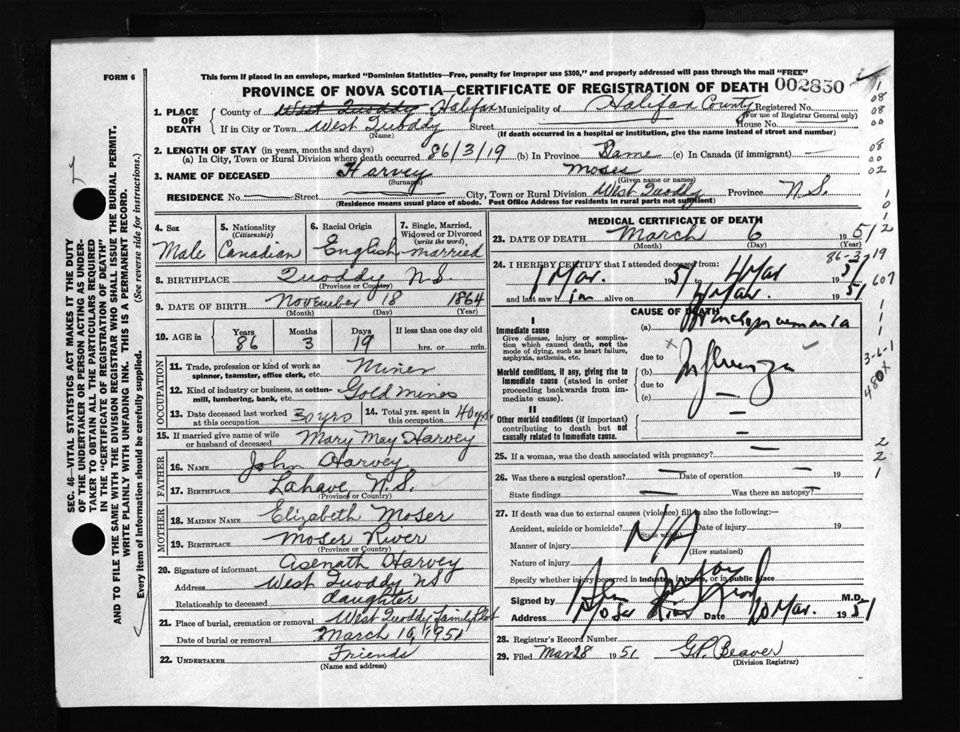 FORM 6
This form if placed in an envelope, marked "Dominion Statistics—Free, penalty for improper use $300," and properly addressed will pass through the mail "FREE"
PROVINCE OF NOVA SCOTIA—CERTIFICATE OF REGISTRATION OF DEATH 002850
1. PLACE OF DEATH County of West Quoddy Halifax Municipality of Halifax County Registered No.
(For use of Registrar General only)
If in City or Town West Quoddy Street House No.
(Name) (If death occurred in a hospital or institution, give the name instead of street and number)
2. LENGTH OF STAY (in years, months and days)
(a) In City, Town or Rural Division where death occurred 86/3/19 (b) In Province Same (c) In Canada (if immigrant) —
3. NAME OF DECEASED Harvey Moser
(Surname) (Given name or names)
RESIDENCE No. — Street — City, Town or Rural Division West Quoddy Province N.S.
(Residence means usual place of abode. Post Office Address for residents in rural parts not sufficient)
4. Sex 5. Nationality 6. Racial Origin 7. Single, Married, Widowed or Divorced
(Citizenship) (write the word)
Male Canadian English married
8. BIRTHPLACE Quoddy N.S.
(Province or Country)
9. DATE OF BIRTH November 18 1864
(Month) (Day) (Year)
10. AGE in Years Months Days If less than one day old
86 3 19 hrs. or min.
OCCUPATION
11. Trade, profession or kind of work as spinner, teamster, office clerk, etc. Miner
12. Kind of industry or business, as cotton-mill, lumbering, bank, etc. Gold mines
13. Date deceased last worked at this occupation 30 yrs 14. Total yrs. spent in this occupation 40 yrs.
15. If married give name of wife or husband of deceased Mary May Harvey
FATHER
16. NAME John Harvey
17. BIRTHPLACE Lahave, N.S.
(Province or Country)
MOTHER
18. MAIDEN NAME Elizabeth Moser
19. BIRTHPLACE Moser River
(Province or Country)
20. Signature of informant Asenath Harvey
Address West Quoddy NS
Relationship to deceased daughter
21. Place of burial, cremation or removal West Quoddy Family Plot
Date of burial or removal March 10, 1951
22. UNDERTAKER Friends
(Name and address)
MEDICAL CERTIFICATE OF DEATH
23. DATE OF DEATH March 6 1951
(Month) (Day) (Year)
86-3-19
24. I HEREBY CERTIFY that I attended deceased from:
1 Mar. 1951 to 4 Mar 1951
and last saw him alive on 4 Mar. 1951
CAUSE OF DEATH
I
Immediate cause
Give disease, injury or complication which caused death, not the mode of dying, such as heart failure, asphyxia, asthenia, etc.
(a) Bronchopneumonia
due to
Morbid conditions, if any, giving rise to immediate cause (stated in order proceeding backwards from immediate cause).
(b) Influenza
due to
(c) —
II
Other morbid conditions (if important) contributing to death but not causally related to immediate cause. —
25. If a woman, was the death associated with pregnancy? —
26. Was there a surgical operation? — Date of operation — 19
State findings — Was there an autopsy? —
27. If death was due to external causes (violence) fill in also the following:—
Accident, suicide or homicide? Date of injury 19
(State which)
Manner of injury N/A
(How sustained)
Nature of injury
Specify whether injury occurred in industry, in home, or in public place
Signed by M.D.
Address Moser River Date 20 Mar. 1951
28. Registrar's Record Number
29. Filed Mar 28 1951 G.P. Beaver
(Division Registrar)
SEC. 46—VITAL STATISTICS ACT MAKES IT THE DUTY
OF THE UNDERTAKER OR PERSON ACTING AS UNDER-
TAKER TO OBTAIN ALL THE PARTICULARS REQUIRED
IN THE "CERTIFICATE OF REGISTRATION OF DEATH"
AND TO FILE THE SAME WITH THE DIVISION REGISTRAR WHO SHALL ISSUE THE BURIAL PERMIT.
WRITE PLAINLY WITH UNFADING INK. THIS IS A PERMANENT RECORD.
Every item of information should be carefully supplied. (See reverse side for instructions.)
1
08
08
00
08
00
02
1
0
1
2
19
607
1
1
1
3-6-1
480X
2
2
1